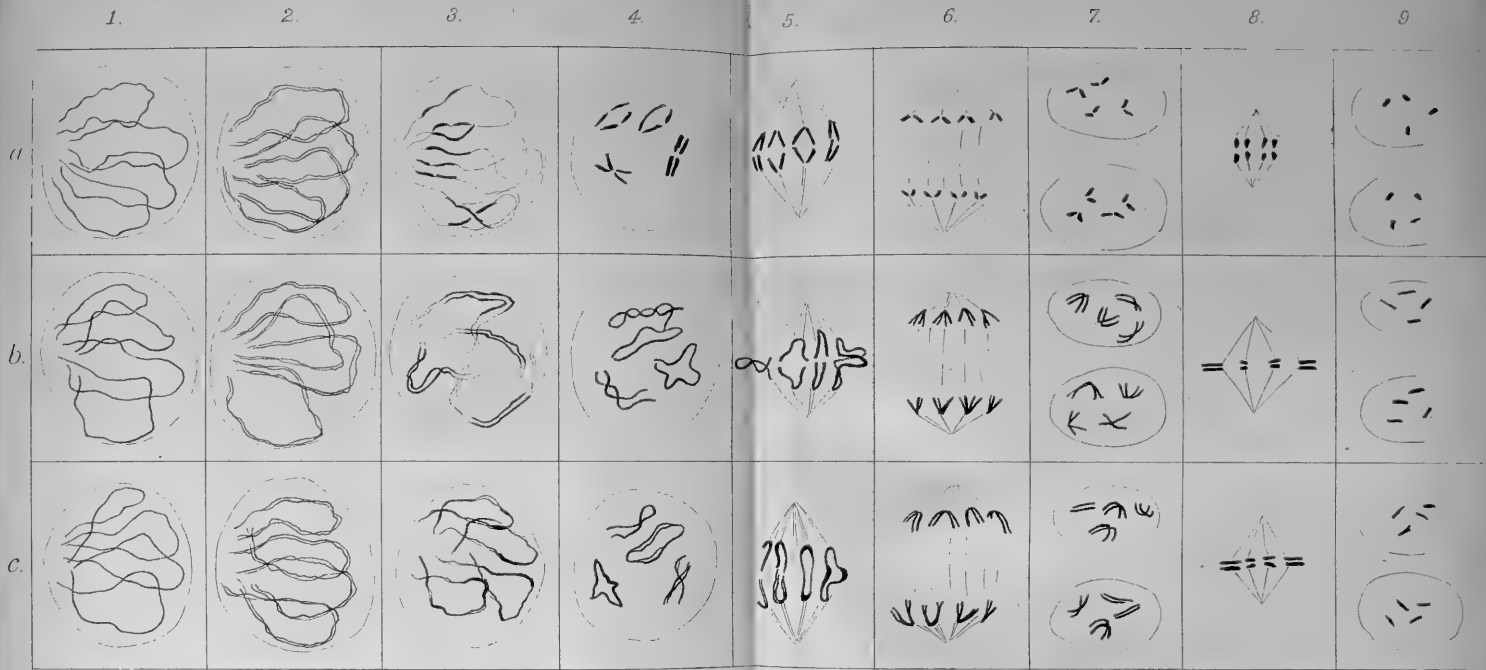 1. 2. 3. 4. 5. 6. 7. 8. 9
a
b.
c.